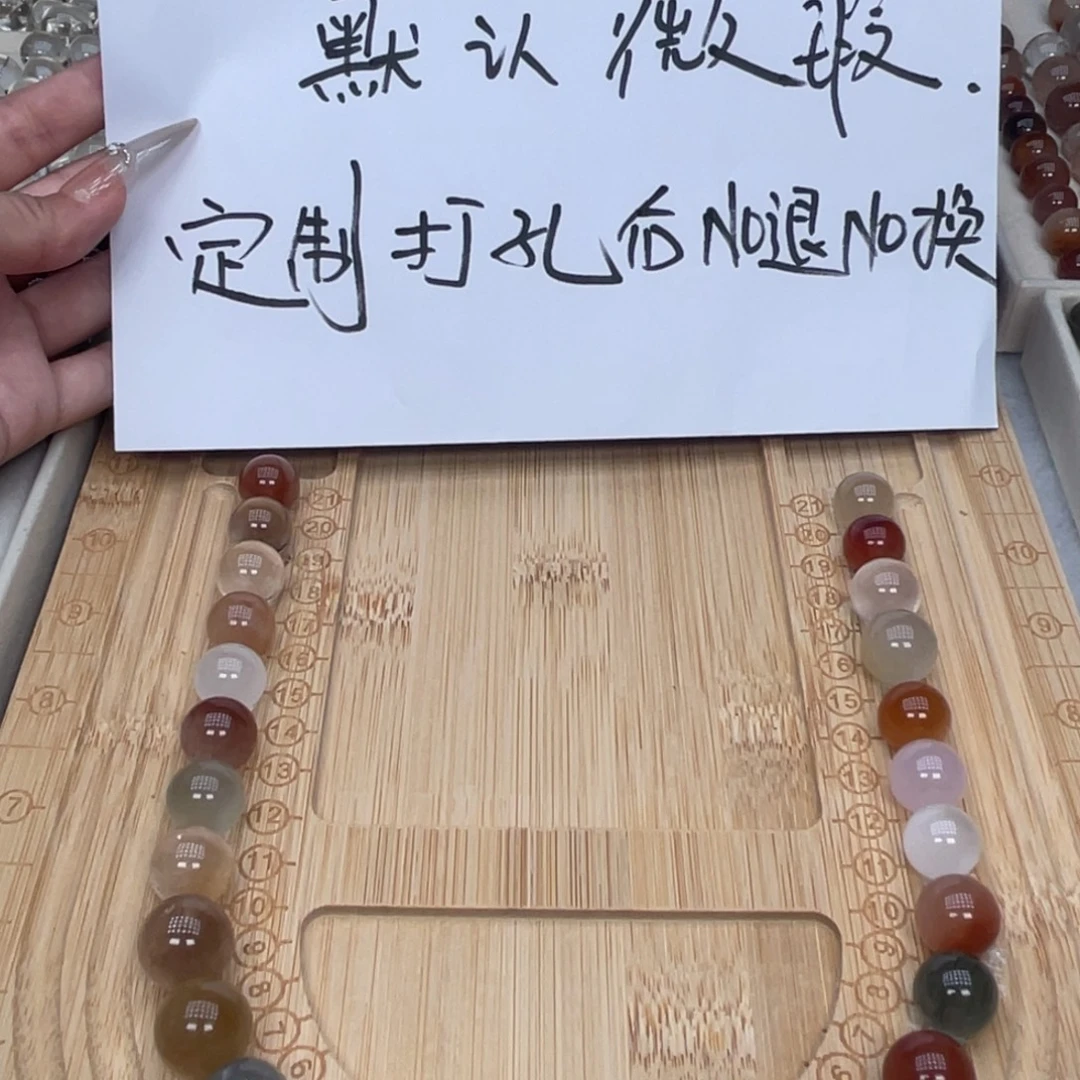 默认微瑕.
定制打孔后NO退NO换
21
20
19
18
17
16
15
14
13
12
11
10
9
8
7
6
10
9
8
7
21
20
19
18
17
16
15
14
13
12
11
10
9
8
7
6
11
10
9
8